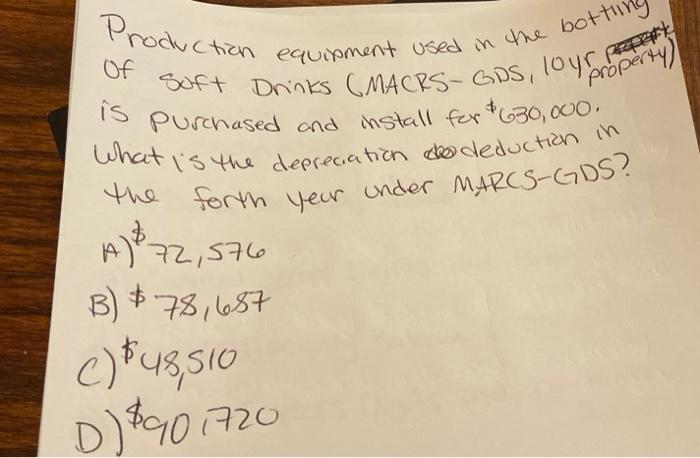 Production equipment used in the bottling
Of Soft Drinks (MACRS-GDS, 10yr property)
is purchased and install for $630,000.
What is the depreciation deduction in
the forth year under MARCS-GDS?
A) $72,576
B) $78,687
C) $48,510
D) $90,720